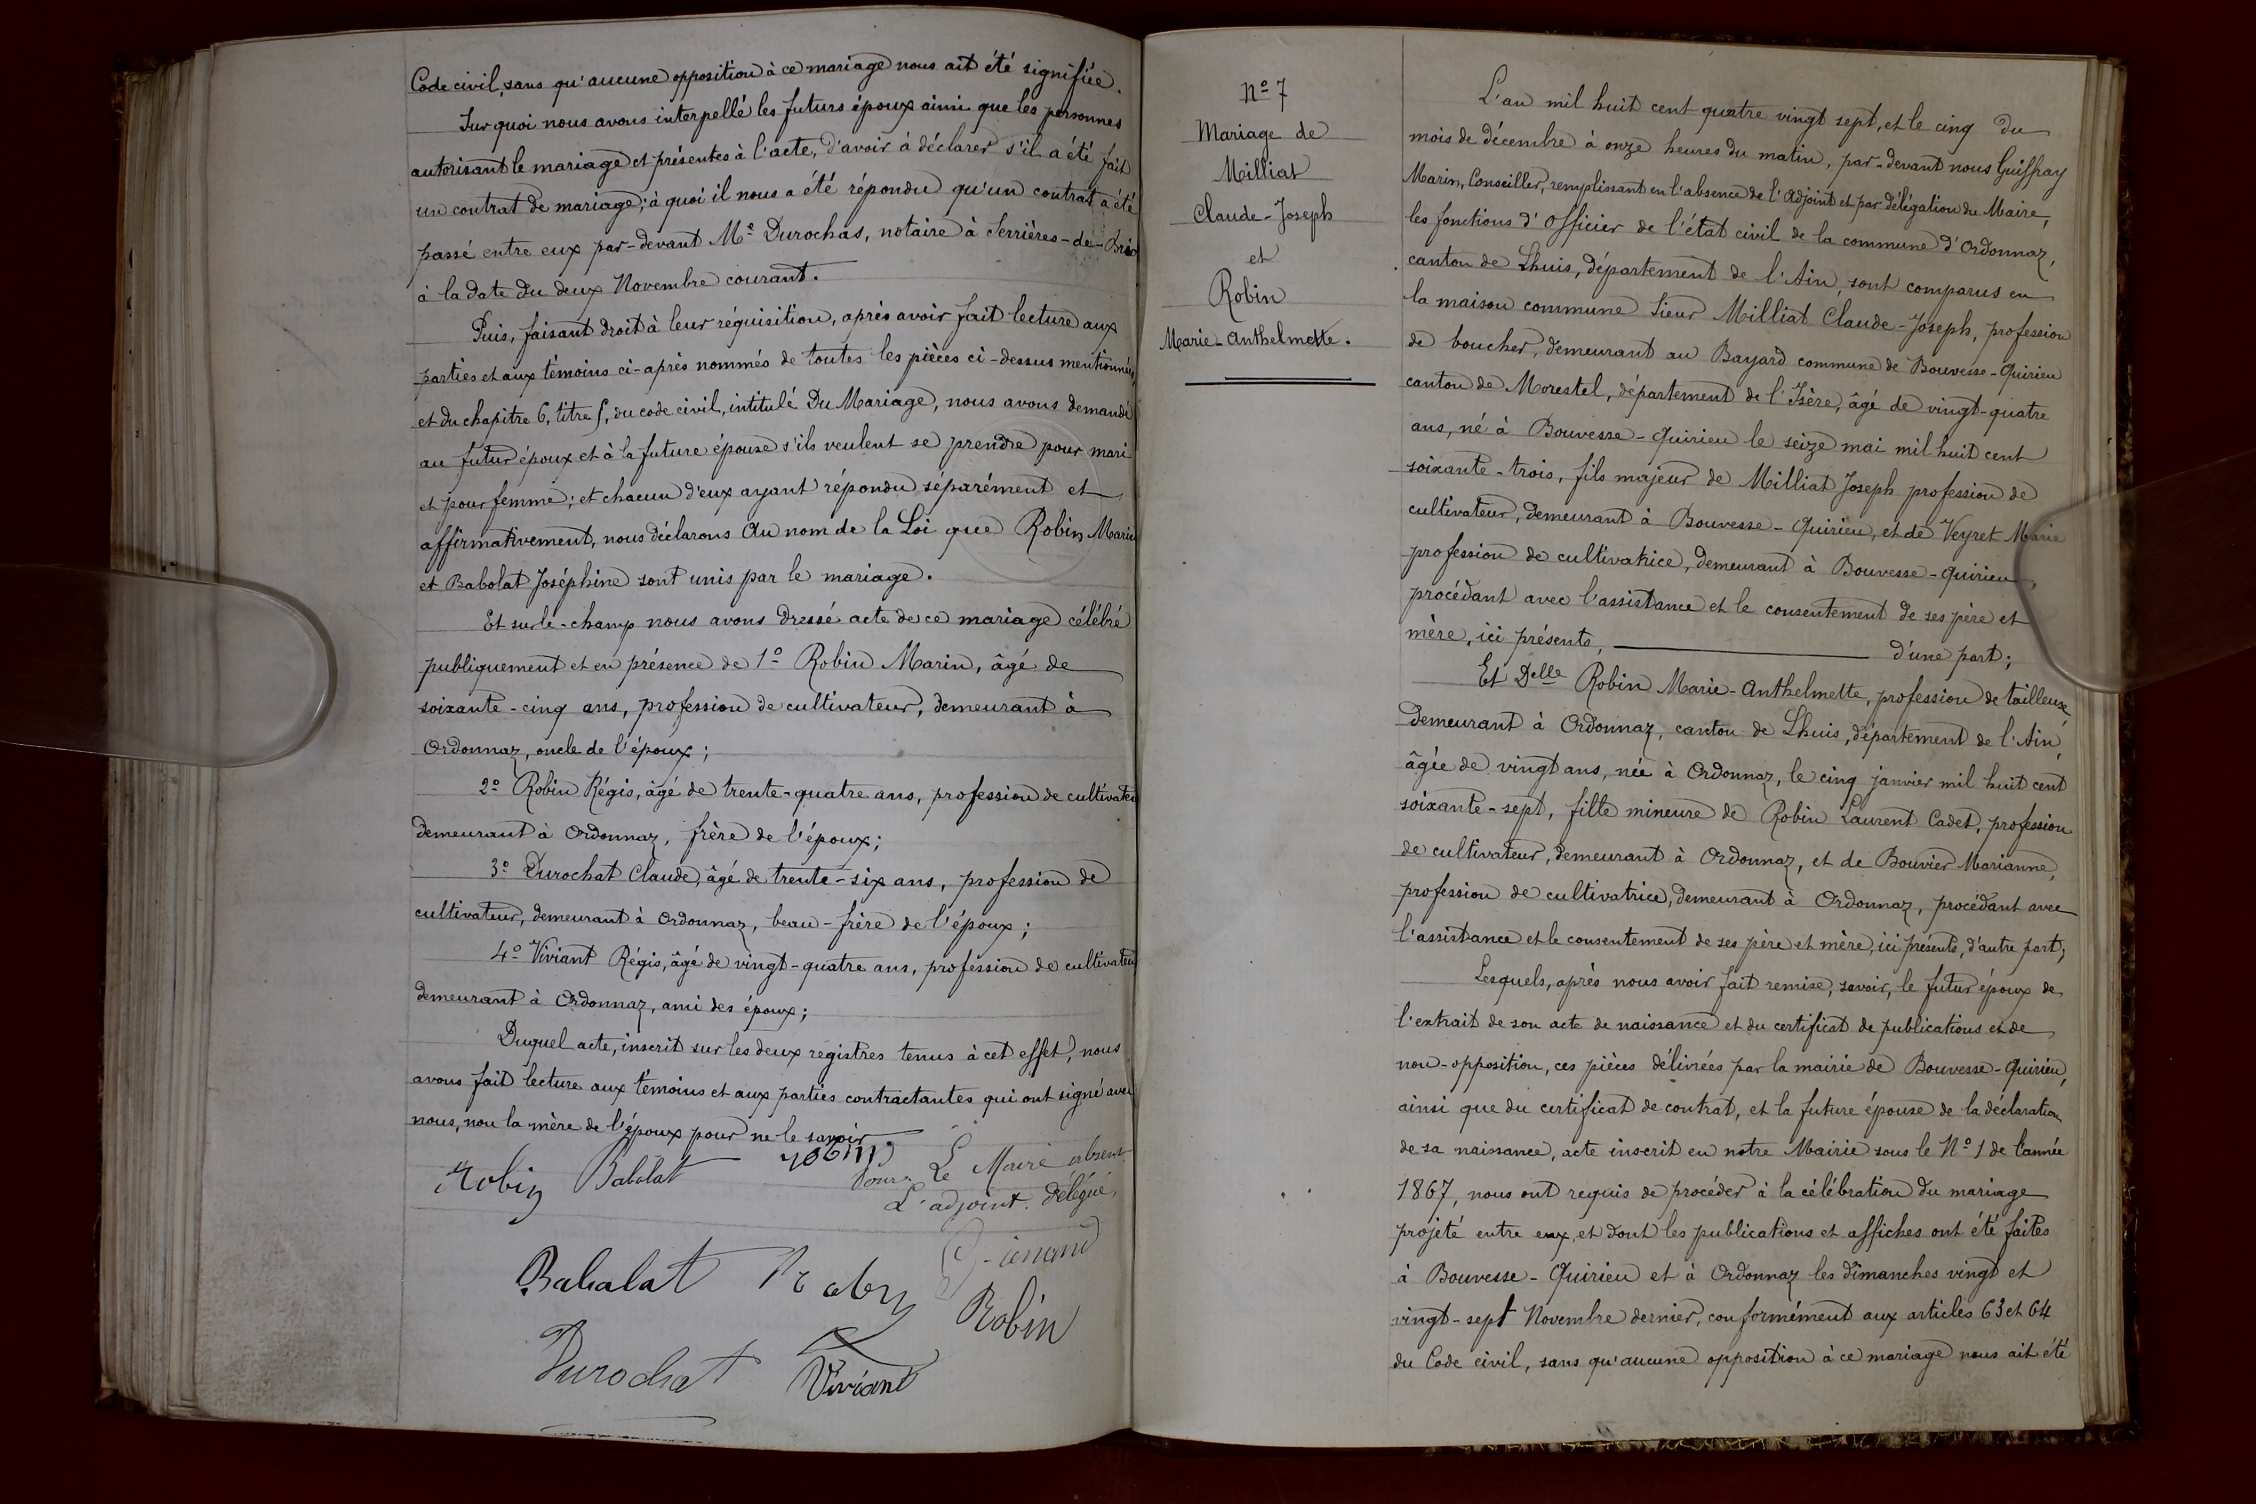 Code civil, sans qu'aucune opposition à ce mariage nous ait été signifiée.
Sur quoi nous avons interpellé les futurs époux ainsi que les personnes
autorisant le mariage et présentes à l'acte, d'avoir à déclarer s'il a été fait
un contrat de mariage; à quoi il nous a été répondu qu'un contrat a été
passé entre eux par-devant Me Durochas, notaire à Serrières-de-Briord
à la date du deux Novembre courant.
Puis, faisant droit à leur réquisition, après avoir fait lecture aux
parties et aux témoins ci-après nommés de toutes les pièces ci-dessus mentionnées,
et du chapitre 6, titre 5, du code civil, intitulé Du Mariage, nous avons demandé
au futur époux et à la future épouse s'ils veulent se prendre pour mari
et pour femme; et chacun d'eux ayant répondu séparément et
affirmativement, nous déclarons Au nom de la Loi que Robin Marin
et Babolat Joséphine sont unis par le mariage.
Et sur-le-champ nous avons dressé acte de ce mariage célébré
publiquement et en présence de 1º Robin Marin, âgé de
soixante-cinq ans, profession de cultivateur, demeurant à
Ordonnaz, oncle de l'époux;
2º Robin Régis, âgé de trente-quatre ans, profession de cultivateur
demeurant à Ordonnaz, frère de l'époux;
3º Durochat Claude, âgé de trente-six ans, profession de
cultivateur, demeurant à Ordonnaz, beau-frère de l'époux;
4º Viviant Régis, âgé de vingt-quatre ans, profession de cultivateur
demeurant à Ordonnaz, ami des époux;
Duquel acte, inscrit sur les deux registres tenus à cet effet, nous
avons fait lecture aux témoins et aux parties contractantes qui ont signé avec
nous, non la mère de l'époux pour ne le savoir
Robin Babolat robin Pour Le Maire absent
L'adjoint délégué,
Babalat Robin
Robin
Durochat Viviant
Nº 7
Mariage de
Milliat
Claude-Joseph
et
Robin
Marie-Anthelmette.
L'an mil huit cent quatre vingt sept, et le cinq du
mois de décembre à onze heures du matin, par-devant nous Guiffray
Marin, Conseiller, remplissant en l'absence de l'Adjoint et par délégation du Maire,
les fonctions d'Officier de l'état civil de la commune d'Ordonnaz,
canton de Lhuis, département de l'Ain, sont comparus en
la maison commune Sieur Milliat Claude-Joseph, profession
de boucher, demeurant au Bayard commune de Bouvesse-Quirieu
canton de Morestel, département de l'Isère, âgé de vingt-quatre
ans, né à Bouvesse-Quirieu le seize mai mil huit cent
soixante-trois, fils majeur de Milliat Joseph profession de
cultivateur, demeurant à Bouvesse-Quirieu, et de Veyret Marie
profession de cultivatrice, demeurant à Bouvesse-Quirieu,
procédant avec l'assistance et le consentement de ses père et
mère, ici présents, d'une part;
Et Delle Robin Marie-Anthelmette, profession de tailleuse,
demeurant à Ordonnaz, canton de Lhuis, département de l'Ain,
âgée de vingt ans, née à Ordonnaz, le cinq janvier mil huit cent
soixante-sept, fille mineure de Robin Laurent Cadet, profession
de cultivateur, demeurant à Ordonnaz, et de Bouvier Marianne,
profession de cultivatrice, demeurant à Ordonnaz, procédant avec
l'assistance et le consentement de ses père et mère, ici présents, d'autre part;
Lesquels, après nous avoir fait remise, savoir, le futur époux de
l'extrait de son acte de naissance et du certificat de publications et de
non-opposition, ces pièces délivrées par la mairie de Bouvesse-Quirieu,
ainsi que du certificat de contrat, et la future épouse de la déclaration
de sa naissance, acte inscrit en notre Mairie sous le Nº 1 de l'année
1867, nous ont requis de procéder à la célébration du mariage
projeté entre eux, et dont les publications et affiches ont été faites
à Bouvesse-Quirieu et à Ordonnaz les dimanches vingt et
vingt-sept Novembre dernier, conformément aux articles 63 et 64
du Code civil, sans qu'aucune opposition à ce mariage nous ait été